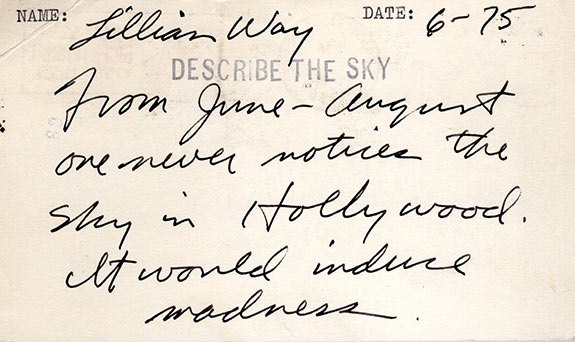 NAME: Lillian Way DATE: 6-75
DESCRIBE THE SKY
From June - August
one never notices the
sky in Hollywood.
It would induce
madness.